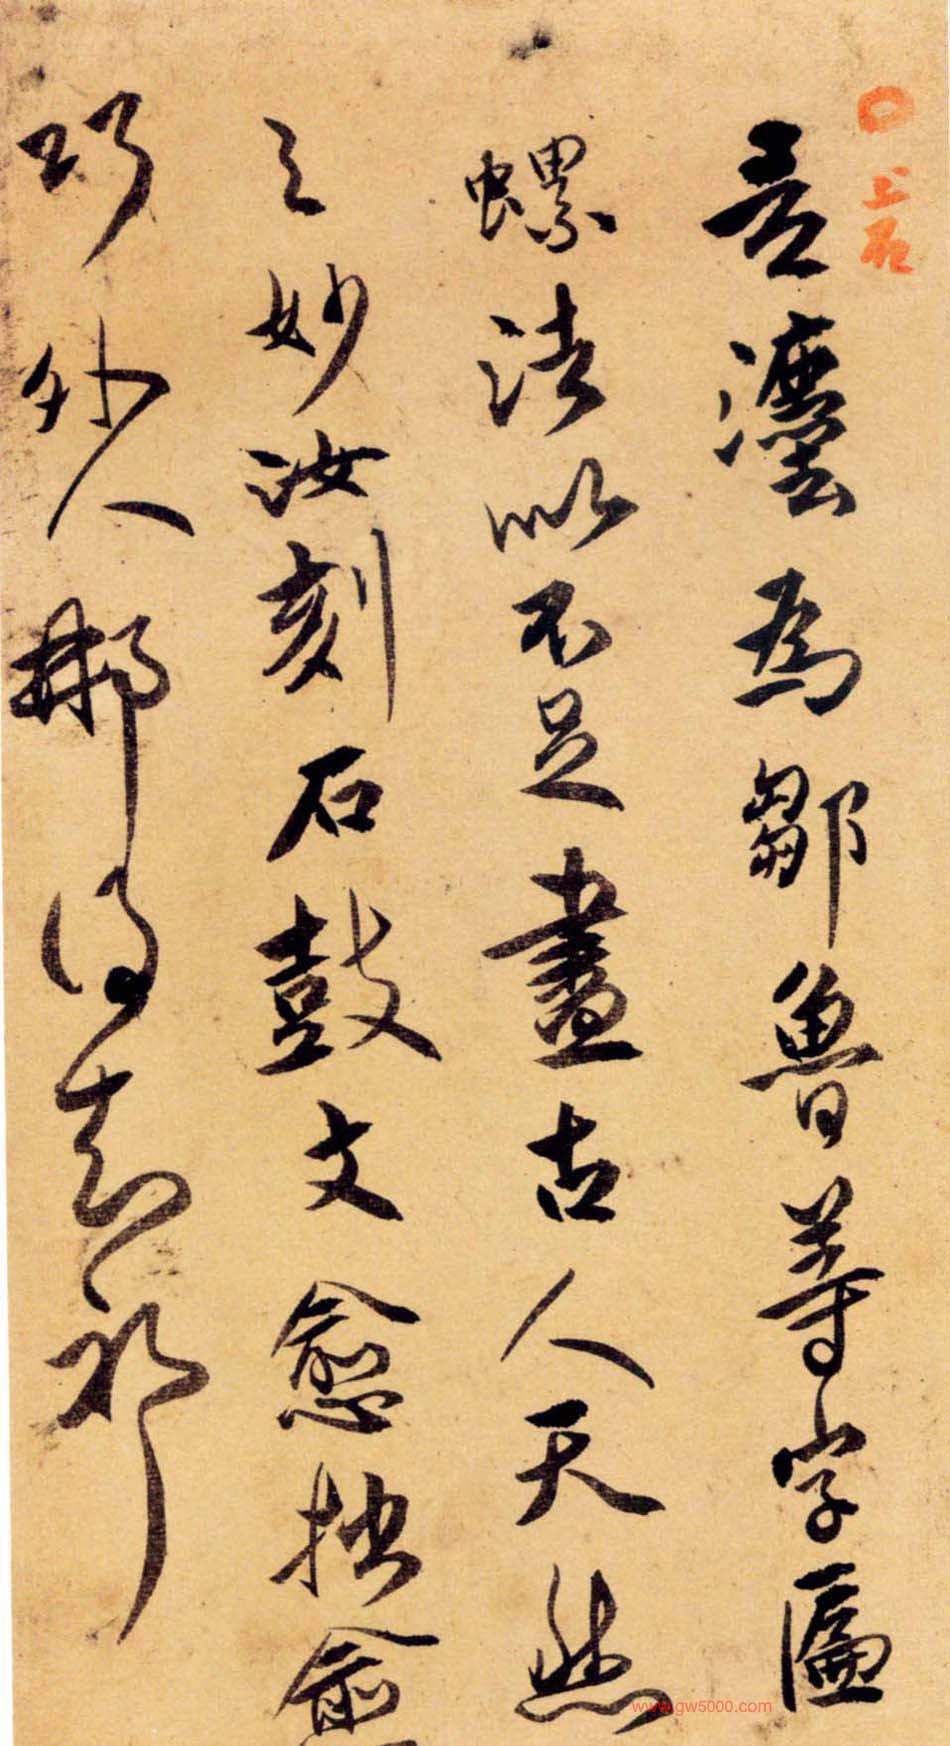 上石
吾灋為鄒魯等字匾
螺法似不足盡古人天然
之妙汝刻石鼓文愈拙愈
巧外人那得知耶
www.gw5000.com